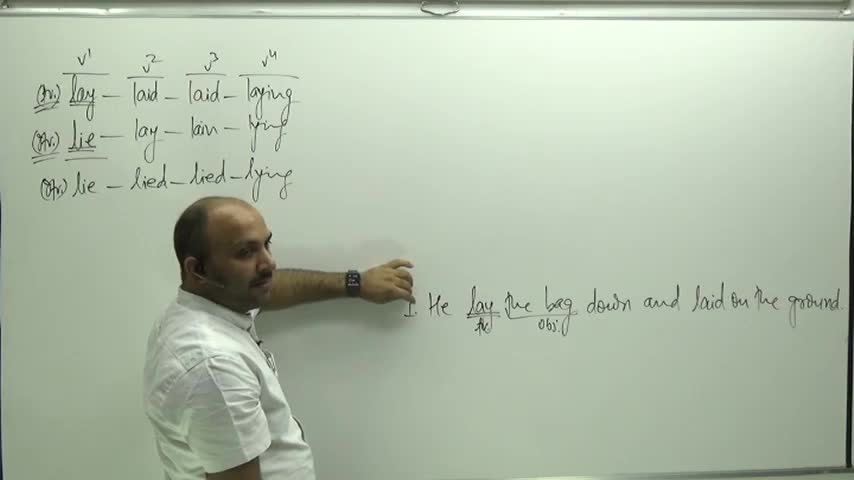 V¹ V² V³ V⁴
(tr.) lay - laid - laid - laying
(Itr.) lie - lay - lain - lying
(Itr.) lie - lied - lied - lying
1. He lay the bag down and laid on the ground.
obj.